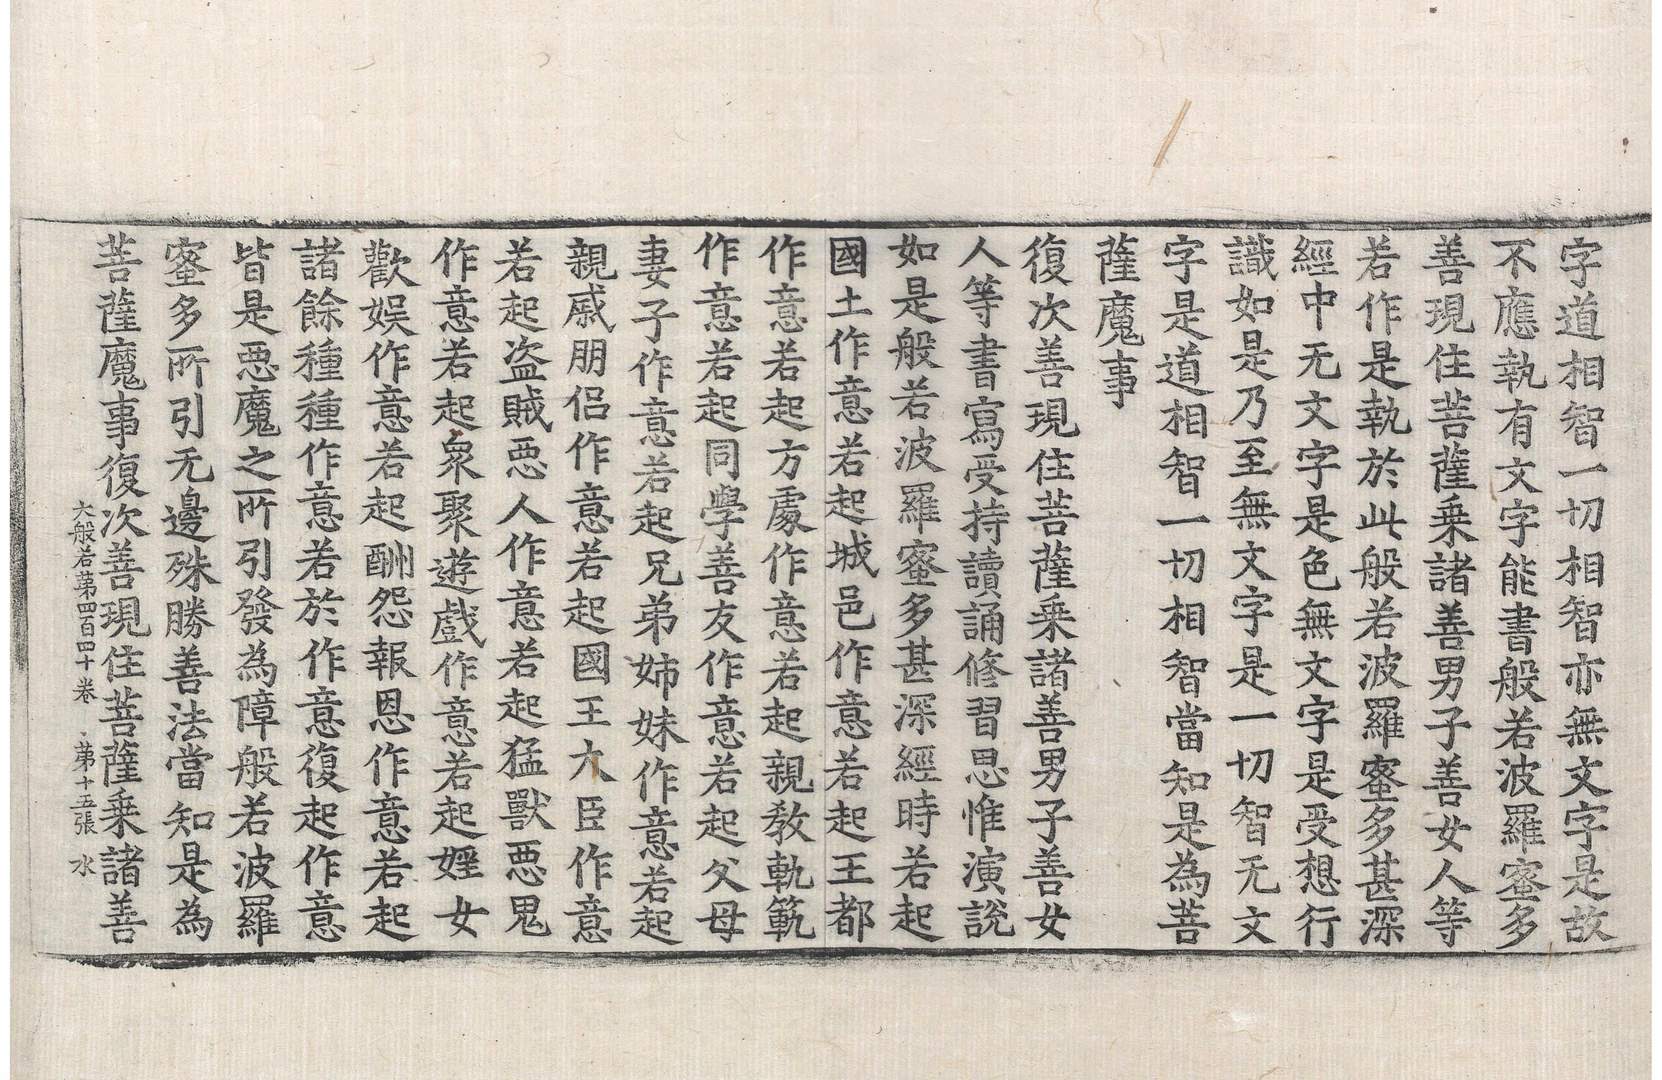 字道相智一切相智亦無文字是故
不應執有文字能書般若波羅蜜多
善現住菩薩乗諸善男子善女人等
若作是執於此般若波羅蜜多甚深
經中无文字是色無文字是受想行
識如是乃至無文字是一切智无文
字是道相智一切相智當知是為菩
薩魔事
復次善現住菩薩乗諸善男子善女
人等書寫受持讀誦修習思惟演說
如是般若波羅蜜多甚深經時若起
國土作意若起城邑作意若起王都
作意若起方處作意若起親教軌範
作意若起同學善友作意若起父母
妻子作意若起兄弟姊妹作意若起
親戚朋侶作意若起國王大臣作意
若起盜賊惡人作意若起猛獸惡鬼
作意若起衆聚遊戲作意若起婬女
歡娛作意若起酬怨報恩作意若起
諸餘種種作意若於作意復起作意
皆是惡魔之所引發為障般若波羅
蜜多所引无邊殊勝善法當知是為
菩薩魔事復次善現住菩薩乗諸善
大般若第四百四十卷 第十五張 水